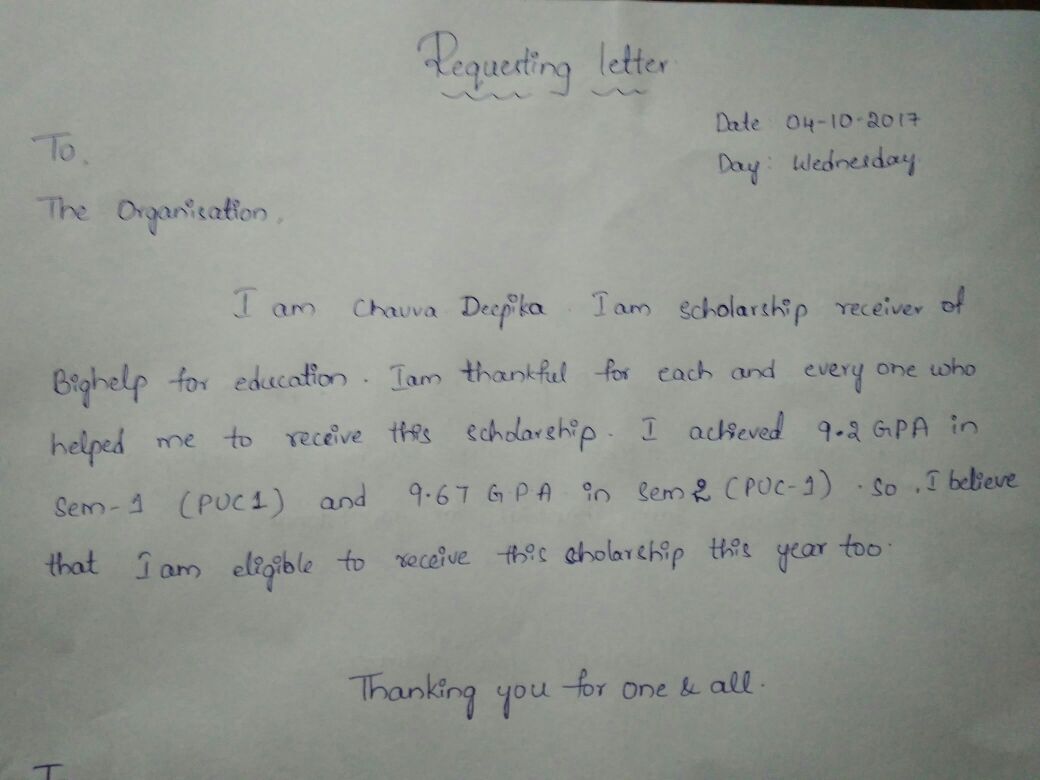 Requesting letter
Date: 04-10-2017
To,
Day: Wednesday
The Organisation,
I am Chavva Deepika. I am scholarship receiver of
Bighelp for education. Iam thankful for each and every one who
helped me to receive this scholarship. I achieved 9.2 GPA in
Sem-1 (PUC1) and 9.67 G.P.A in Sem 2 (PUC-1). So, I believe
that I am eligible to receive this sholarship this year too.
Thanking you for one & all.